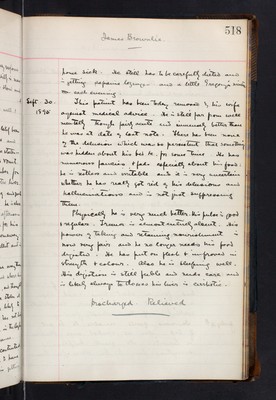 518
James Brownlie.
home sick. He still has to be carefully dieted and
is getting papaine lozenges and a little Gregory's mixture
on each evening.
Sept. 30. This patient has been today removed by his wife
1896 against medical advice. He is still far from well
mentally though quiet and immensely better than
he was at date of last note. There has been none
of the delusion which was so persistent that something
was hidden about his bed &c. for some time. He has
numerous fancies & fads especially about his food,
he is restless and irritable and it is very uncertain
whether he has really got rid of his delusions and
hallucinations and is not just suppressing
them.
Physically he is very much better. His pulse is good
& regular. Tremor is almost entirely absent. His
powers of taking and retaining nourishment is
now very fair and he no longer needs his food
digested. He has put on flesh & improved in
strength & colour. Also he is sleeping well.
His digestion is still feeble and needs care and
is likely always to be as his liver is cirrhotic.
Discharged. Relieved